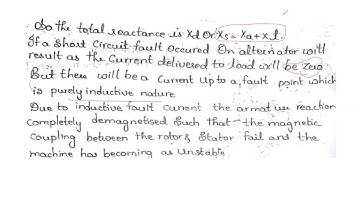 . So the total reactance is Xd Or Xs = Xa+Xl.
If a Short Circuit fault Occured On alternator will
result as the Current delivered to load will be Zero
But there will be a Current Up to a fault point which
is purely inductive nature
Due to inductive fault Current the armature reaction
Completely demagnetised Such that the magnetic
Coupling between the rotor & Stator fail and the
machine has becoming as Unstable